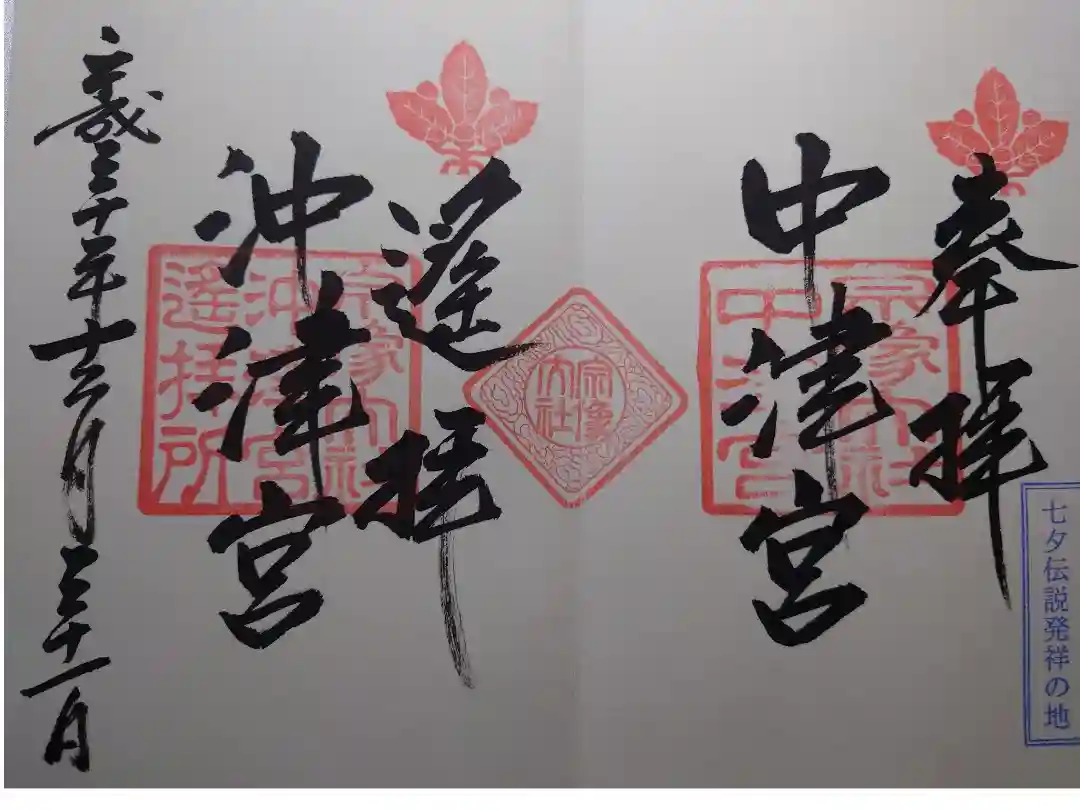 奉拝
七夕伝説発祥の地
中津宮
宗像大社
中津宮
宗像
大社
遙拝
沖津宮
宗像大社
沖津宮
遙拝所
平成三十年十二月三十一日